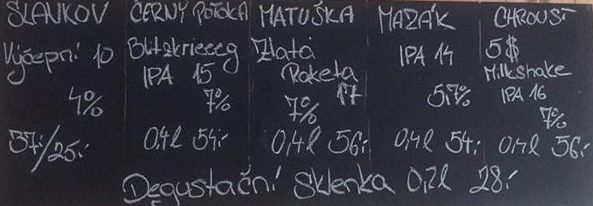 SLAVKOV
Výčepní 10
4%
37.-/25.-
ČERNÝ POTOKA
Blitzkrieeeg
IPA 15
7%
0,4l 54.-
MATUŠKA
Zlatá
Raketa
17
7%
0,4l 56.-
MAZÁK
IPA 14
5,7%
0,4l 54.-
CHROUST
5$
Milkshake
IPA 16
7%
0,4l 56.-
Degustační Sklenka 0,2l 28.-